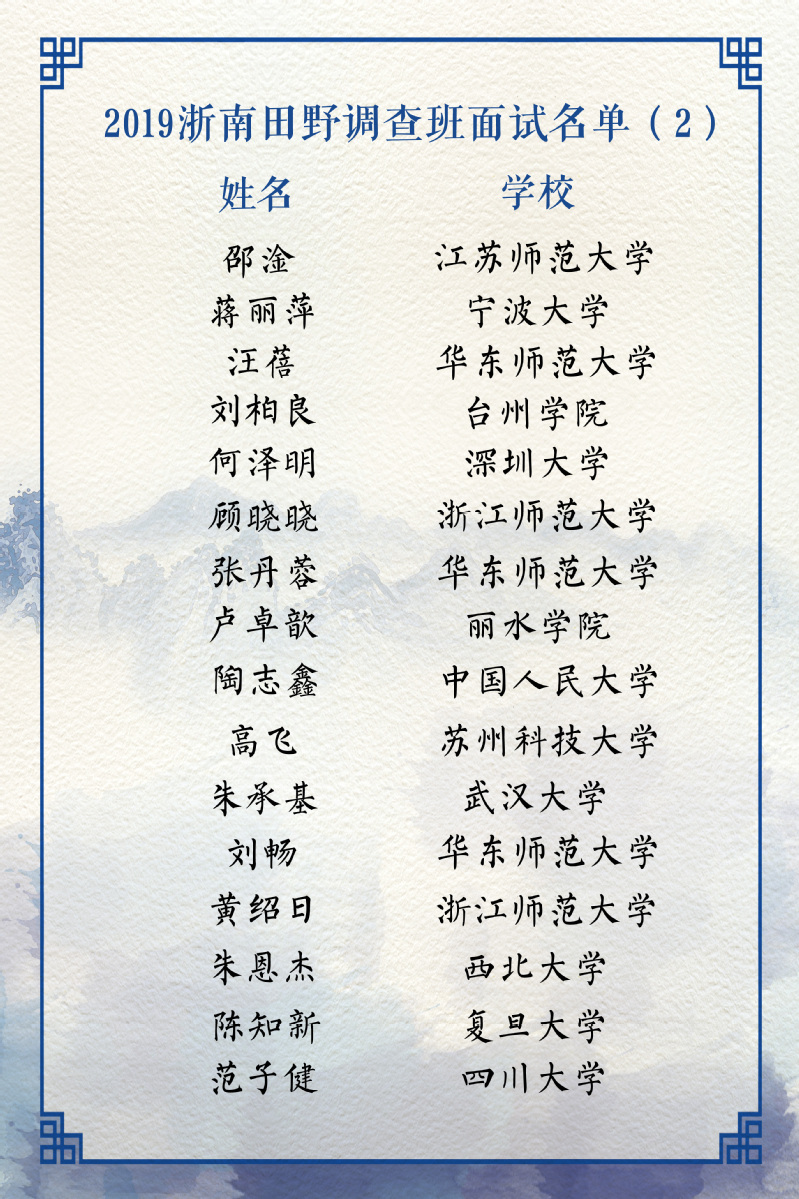 2019浙南田野调查班面试名单（2）
姓名 学校
邵淦 江苏师范大学
蒋丽萍 宁波大学
汪蓓 华东师范大学
刘柏良 台州学院
何泽明 深圳大学
顾晓晓 浙江师范大学
张丹蓉 华东师范大学
卢卓歆 丽水学院
陶志鑫 中国人民大学
高飞 苏州科技大学
朱承基 武汉大学
刘畅 华东师范大学
黄绍日 浙江师范大学
朱恩杰 西北大学
陈知新 复旦大学
范子健 四川大学